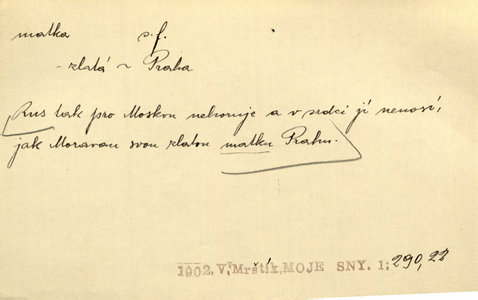 matka s. f.
- zlatá ~ Praha
Rus tak pro Moskvu nehoruje a v srdci jí nenosí,
jak Moravan svou zlatou matku Prahu.
1902, V. Mrštík, MOJE SNY. 1; 290, 22